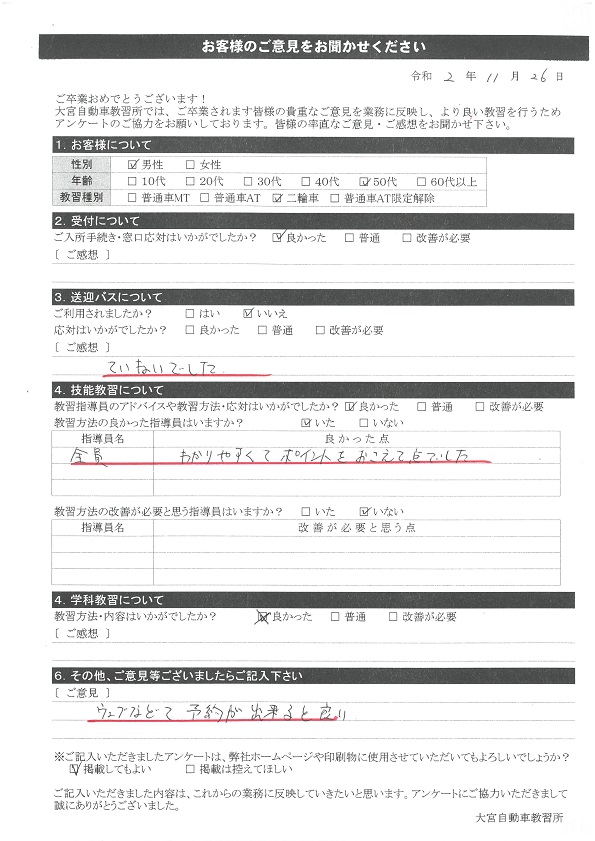 お客様のご意見をお聞かせください
令和 2 年 11 月 26 日
ご卒業おめでとうございます！
大宮自動車教習所では、ご卒業されます皆様の貴重なご意見を業務に反映し、より良い教習を行うため
アンケートのご協力をお願いしております。皆様の率直なご意見・ご感想をお聞かせ下さい。
1. お客様について
性別 ☑男性 □女性
年齢 □10代 □20代 □30代 □40代 ☑50代 □60代以上
教習種別 □普通車MT □普通車AT ☑二輪車 □普通車AT限定解除
2. 受付について
ご入所手続き・窓口応対はいかがでしたか？ ☑良かった □普通 □改善が必要
［ ご感想 ］
3. 送迎バスについて
ご利用されましたか？ □はい ☑いいえ
応対はいかがでしたか？ □良かった □普通 □改善が必要
［ ご感想 ］
ていねいでした
4. 技能教習について
教習指導員のアドバイスや教習方法・応対はいかがでしたか？ ☑良かった □普通 □改善が必要
教習方法の良かった指導員はいますか？ ☑いた □いない
指導員名 良かった点
全員 わかりやすくてポイントをおこえて点でした
教習方法の改善が必要と思う指導員はいますか？ □いた ☑いない
指導員名 改善が必要と思う点
4. 学科教習について
教習方法・内容はいかがでしたか？ ☒良かった □普通 □改善が必要
［ ご感想 ］
6. その他、ご意見等ございましたらご記入下さい
［ ご意見 ］
ウェブなどで予約が出来ると良い
※ご記入いただきましたアンケートは、弊社ホームページや印刷物に使用させていただいてもよろしいでしょうか？
☑掲載してもよい □掲載は控えてほしい
ご記入いただきました内容は、これからの業務に反映していきたいと思います。アンケートにご協力いただきまして
誠にありがとうございました。
大宮自動車教習所